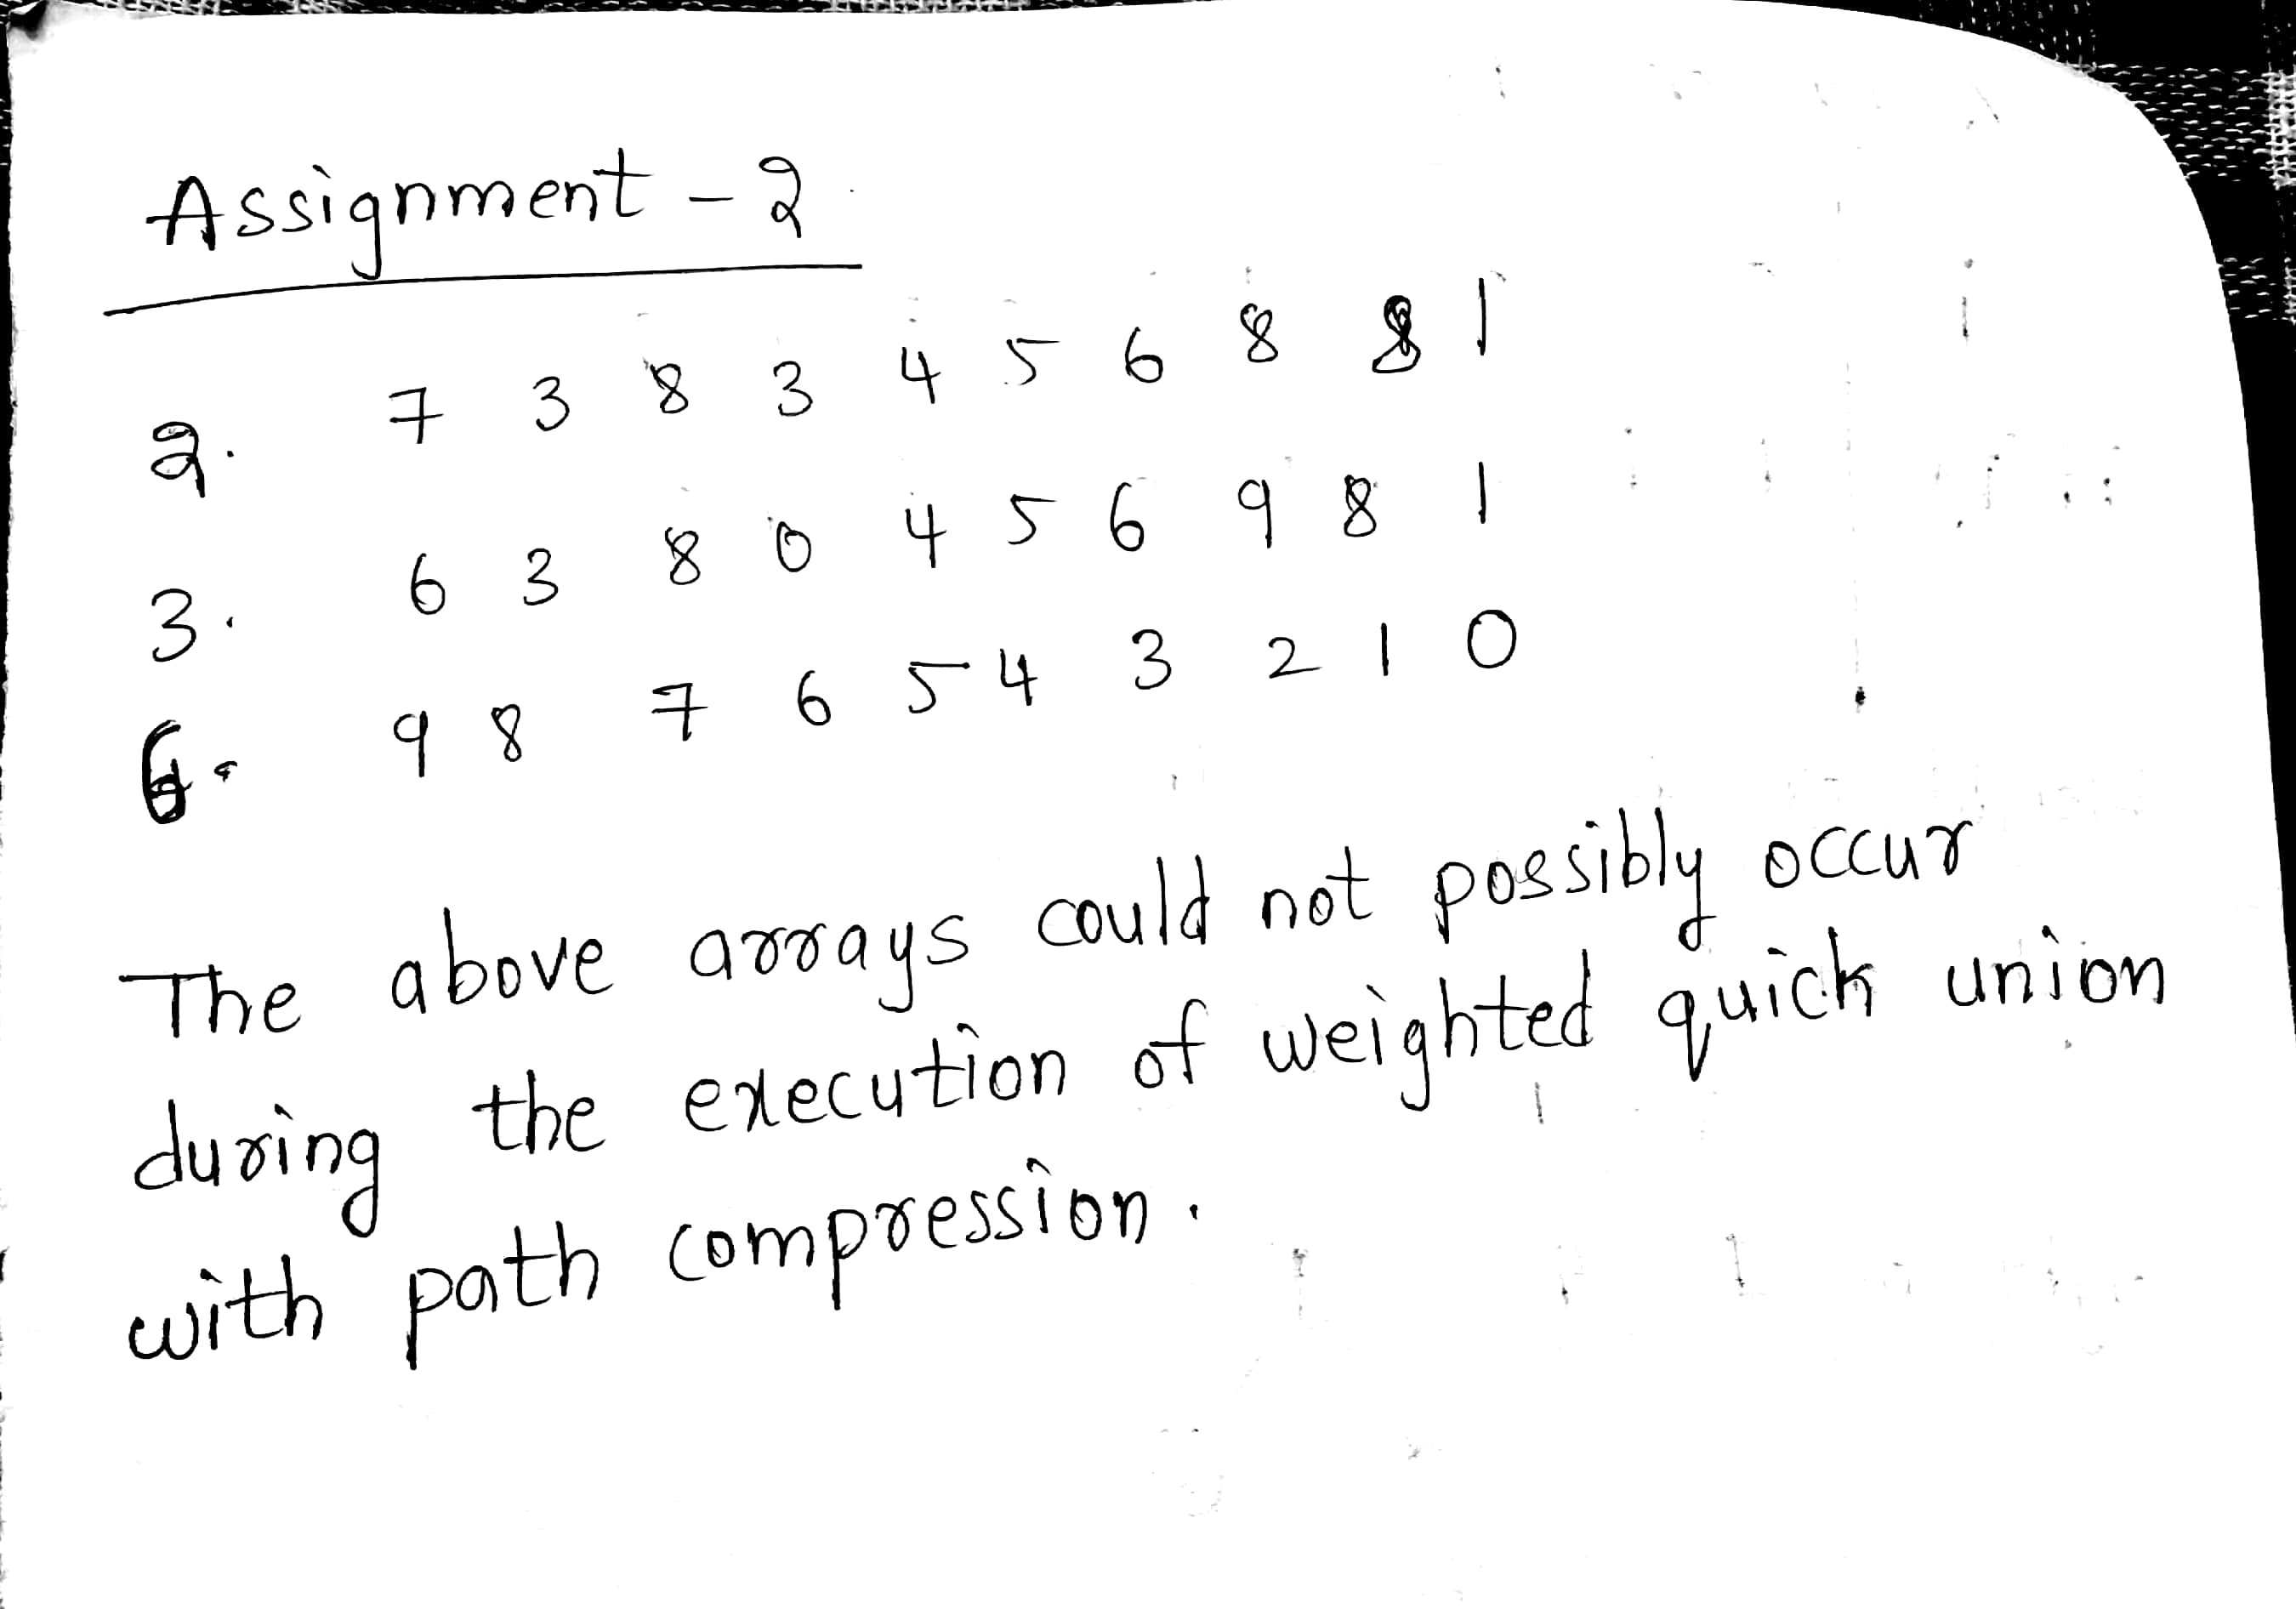 Assignment - 2
2. 7 3 8 3 4 5 6 8 8 1
3. 6 3 8 0 4 5 6 9 8 1
6. 9 8 7 6 5 4 3 2 1 0
The above arrays could not possibly occur
during the execution of weighted quick union
with path compression.